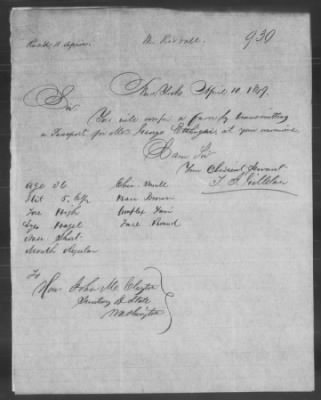 Recd 11 April. M. Rivvall. 930
New York April 10. 1849.
Sir
You will confer a favor by transmitting
a Passport for Mr George at your convenience
I am Sir
Your Obedient Servant
Age 36 Chin Small
Hit 5. 6 Hair Brown
Fore High Complex Fair
Eyes Hazel Face Round
Nose Short
Mouth Regular
To
Hon John M. Clayton
Secretary of State
Washington